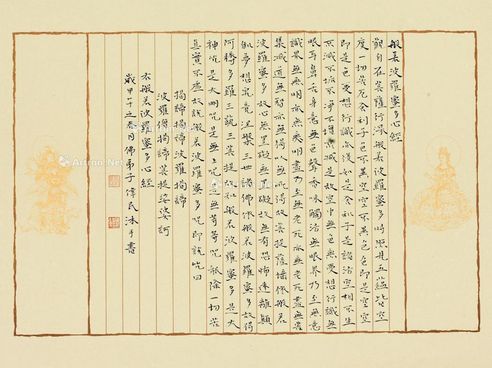 般若波羅蜜多心經
觀自在菩薩行深般若波羅蜜多時照見五蘊皆空
度一切苦厄舍利子色不異空空不異色色即是空空
即是色受想行識亦復如是舍利子是諸法空相不生
不滅不垢不淨不增不減是故空中無色無受想行識無
眼耳鼻舌身意無色聲香味觸法無眼界乃至無意
識界無無明亦無無明盡乃至無老死亦無老死盡無苦
集滅道無智亦無得以無所得故菩提薩埵依般若
波羅蜜多故心無罣礙無罣礙故無有恐怖遠離顛
倒夢想究竟涅槃三世諸佛依般若波羅蜜多故得
阿耨多羅三藐三菩提故知般若波羅蜜多是大
神咒是大明咒是無上咒是無等等咒能除一切苦
真實不虛故說般若波羅蜜多咒即說咒曰
揭諦揭諦波羅揭諦
波羅僧揭諦菩提娑婆訶
右般若波羅蜜多心經
歲甲子之月佛弟子偉民沐手書